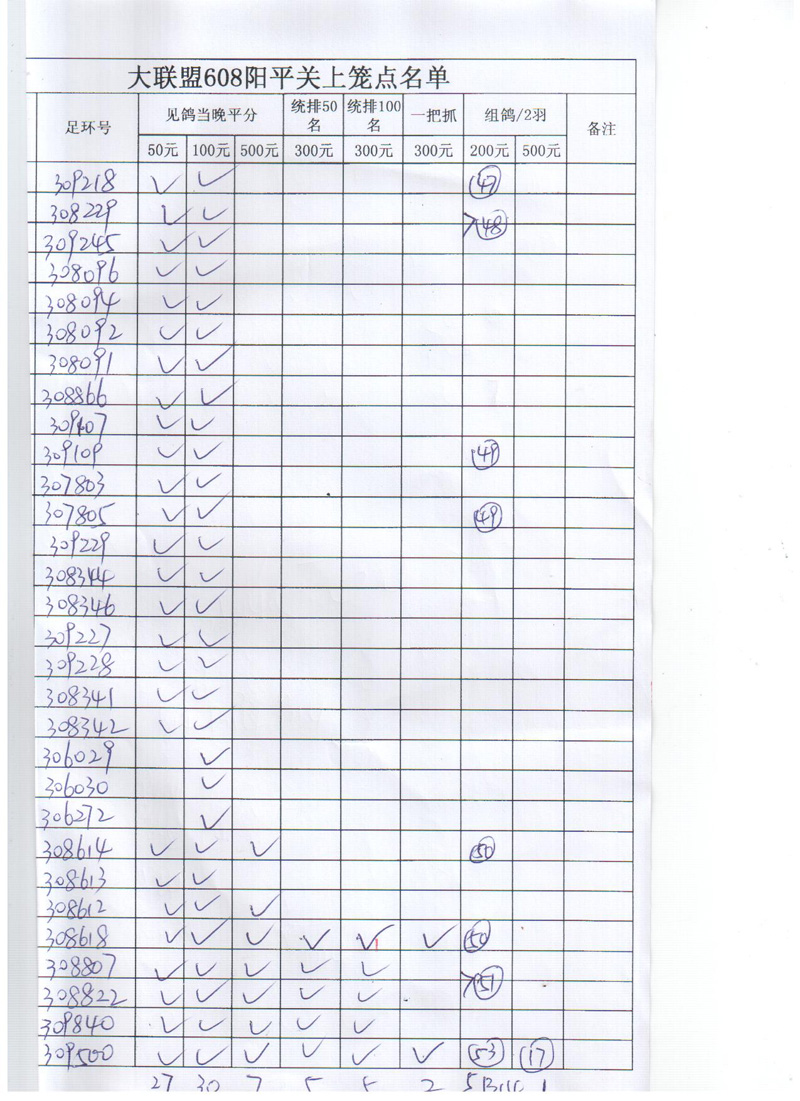 大联盟608阳平关上笼点名单
足环号 见鸽当晚平分 统排50名 统排100名 一把抓 组鸽/2羽 备注
50元 100元 500元 300元 300元 300元 200元 500元
309218 ✓ ✓ 47
308229 ✓ ✓ 48
309245 ✓ ✓
308096 ✓ ✓
308094 ✓ ✓
308092 ✓ ✓
308091 ✓ ✓
308866 ✓ ✓
309407 ✓ ✓
309109 ✓ ✓ 49
307803 ✓ ✓
307805 ✓ ✓ 49
309229 ✓ ✓
308344 ✓ ✓
308346 ✓ ✓
309227 ✓ ✓
309228 ✓ ✓
308341 ✓ ✓
308342 ✓ ✓
306029 ✓
306030 ✓
306272 ✓
308614 ✓ ✓ ✓ 50
308613 ✓ ✓
308612 ✓ ✓ ✓
308618 ✓ ✓ ✓ ✓ ✓ ✓ 50
308807 ✓ ✓ ✓ ✓ ✓ 51
308822 ✓ ✓ ✓ ✓ ✓
309840 ✓ ✓ ✓ ✓ ✓
309500 ✓ ✓ ✓ ✓ ✓ ✓ 53 17
27 30 7 5 5 2